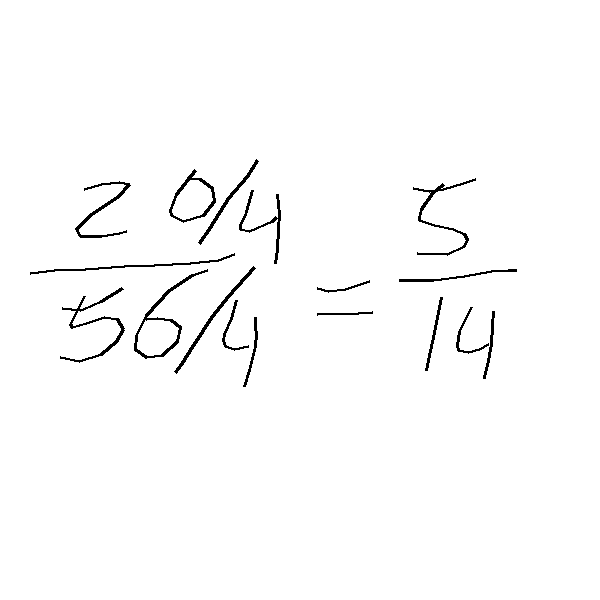 20/4
56/4 = 5
14